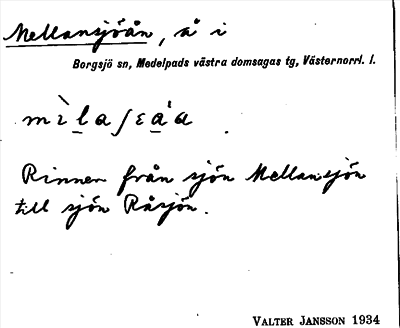 Mellansjöån, å i
Borgsjö sn, Medelpads västra domsagas tg, Västernorrl. l.
Rinner från sjön Mellansjön
till sjön Råsjön.
VALTER JANSSON 1934